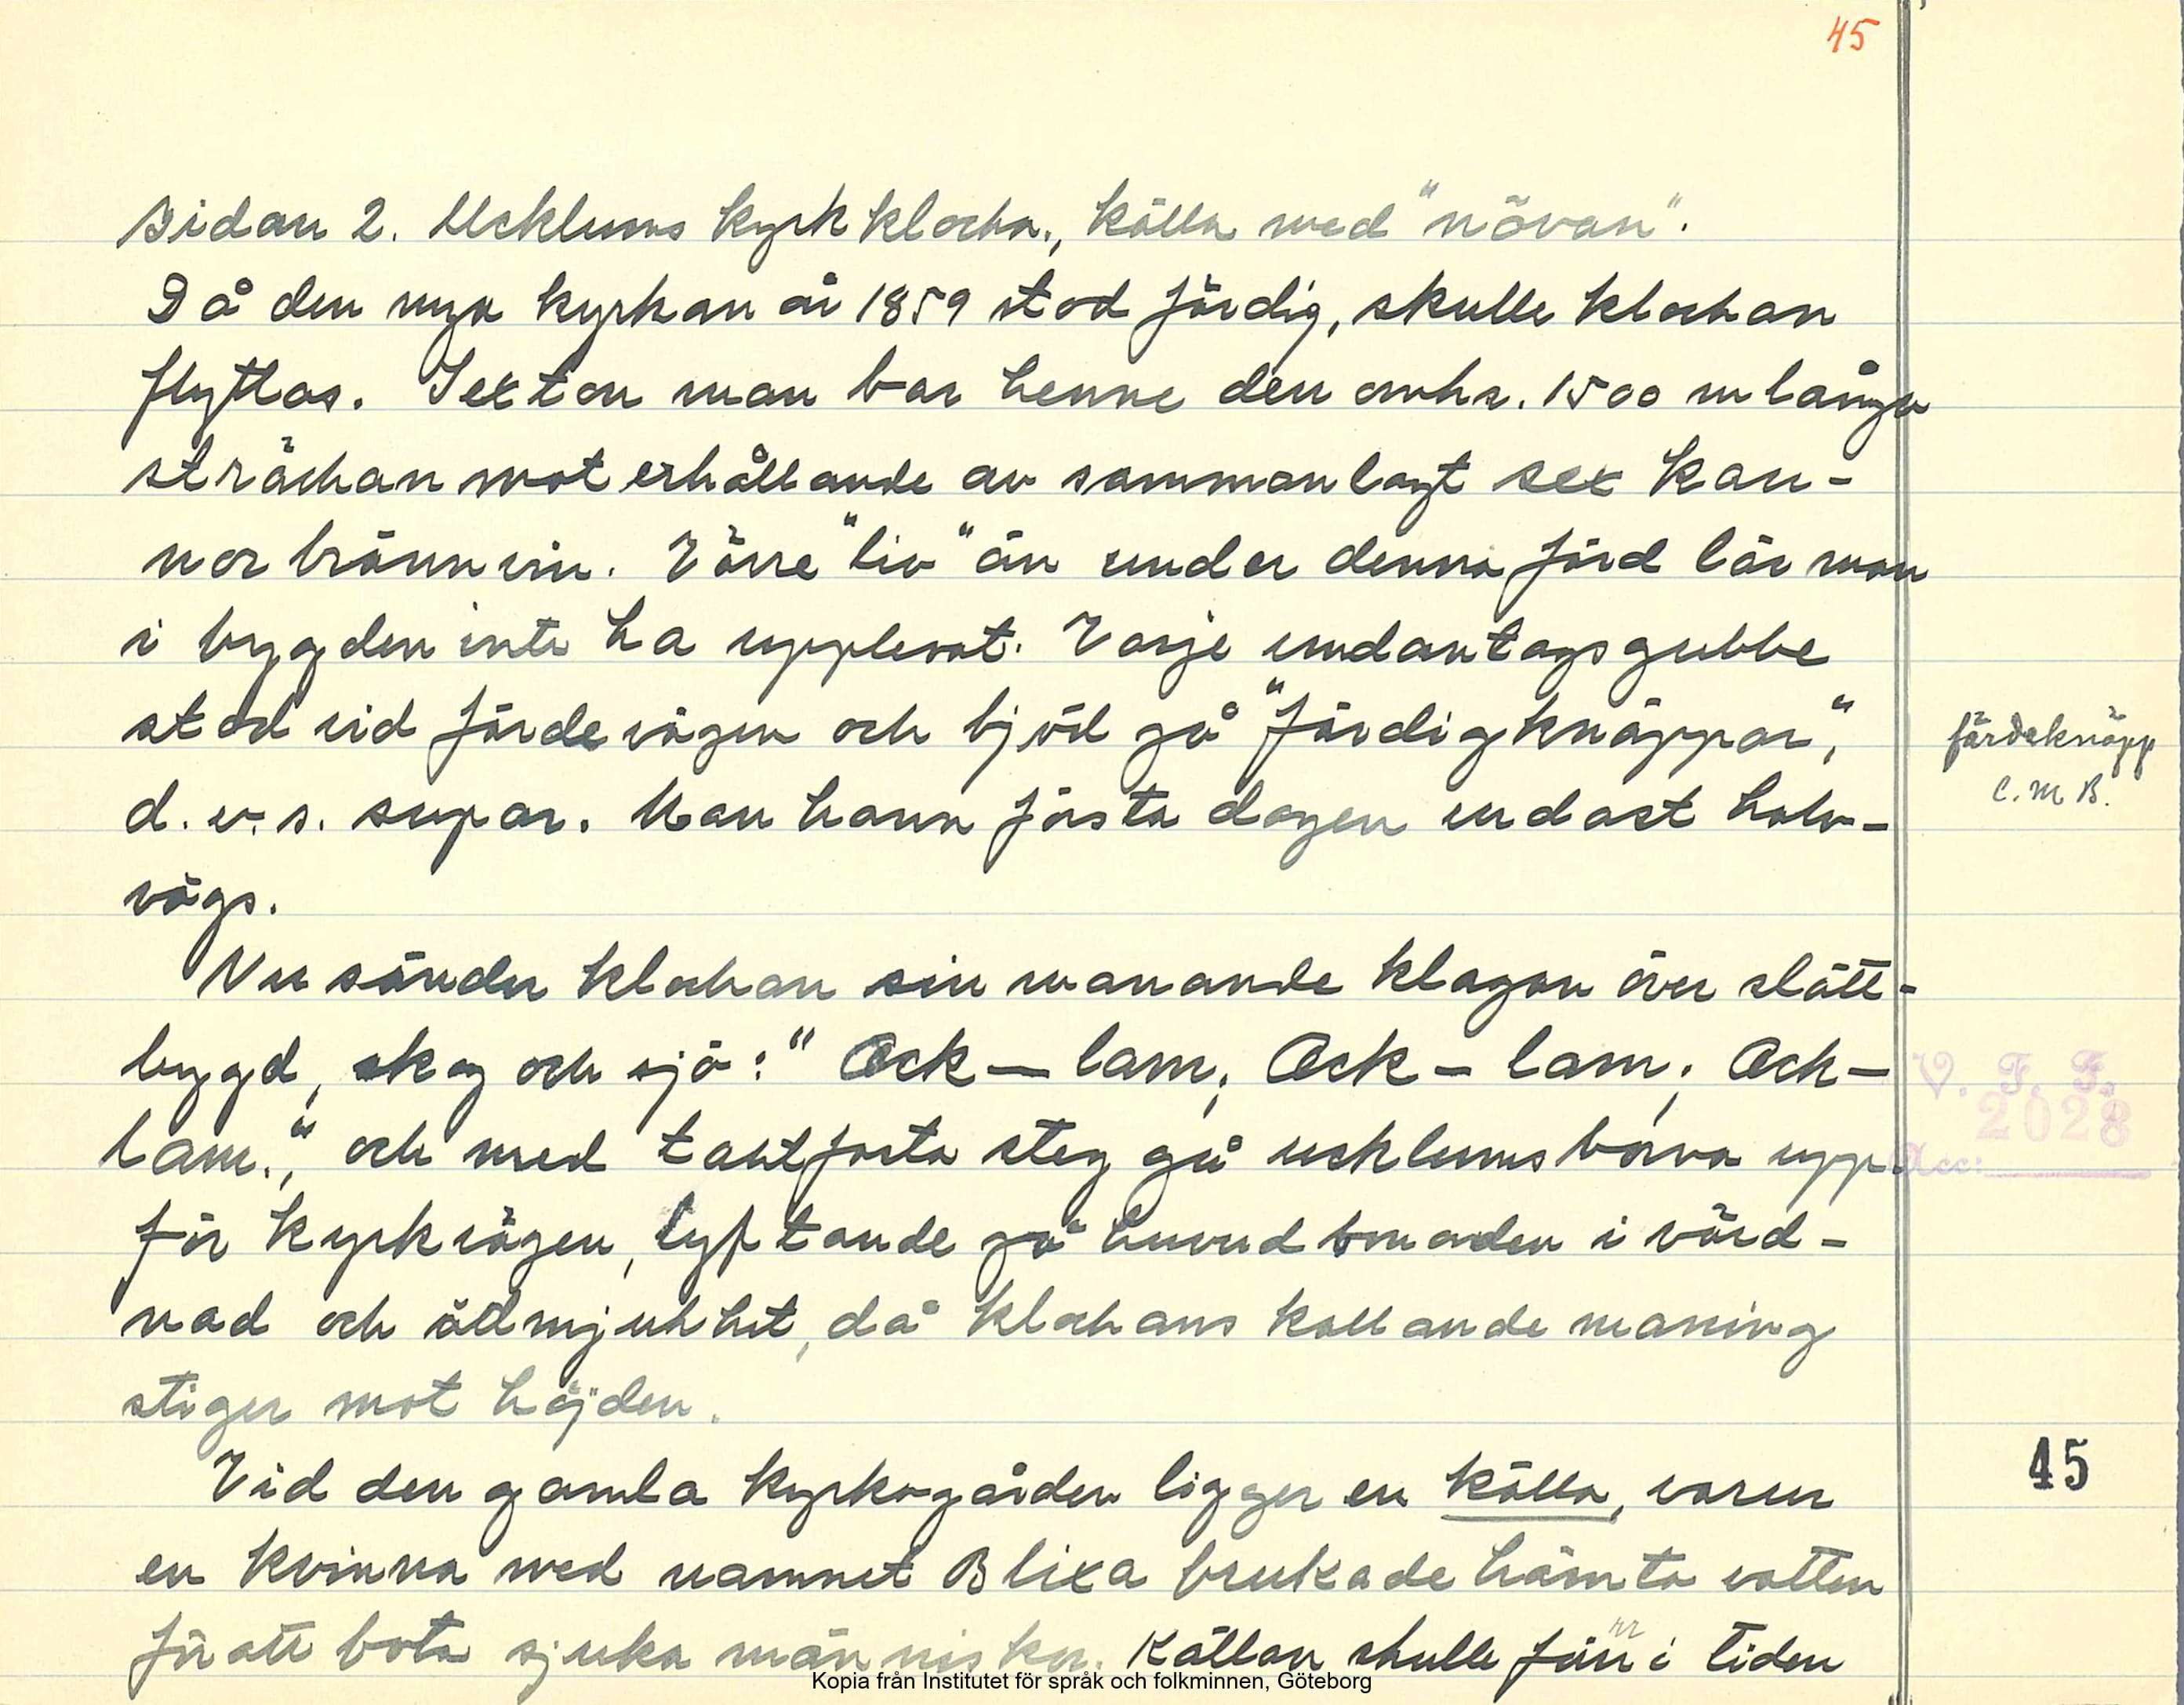 45
sidan 2. Ucklums kyrkklocka., källa med "növan".
Då den nya kyrkan år 1859 stod färdig, skulle klockan
flyttas. Sexton man bar henne den omkr. 1500 m långa
sträckan mot erhållande av sammanlagt sex kan-
nor brännvin. Värre "liv" än under denna färd lär man
i bygden inte ha upplevat. Varje undantagsgubbe
stod vid färdevägen och bjöd på "färdigknäppar",
d.v.s. supar. Man hann första dagen endast halv-
vägs.
färdeknäpp
C.M.B.
Nu sänder klockan sin manande klagan över slätt-
bygd, skog och sjö: "Ock — lam, Ock — lam, Ock —
lam.", och med taktfasta steg gå ucklumsborna upp-
för kyrkvägen, lyftande på huvudbonaden i vörd-
nad och ödmjukhet, då klockans kallande maning
stiger mot höjden.
V. F. F.
2028
Acc:
Vid den gamla kyrkogården ligger en källa, varur
en kvinna med namnet Blixa brukade hämta vatten
för att bota sjuka människor. Källan skulle förr i tiden
45
Kopia från Institutet för språk och folkminnen, Göteborg